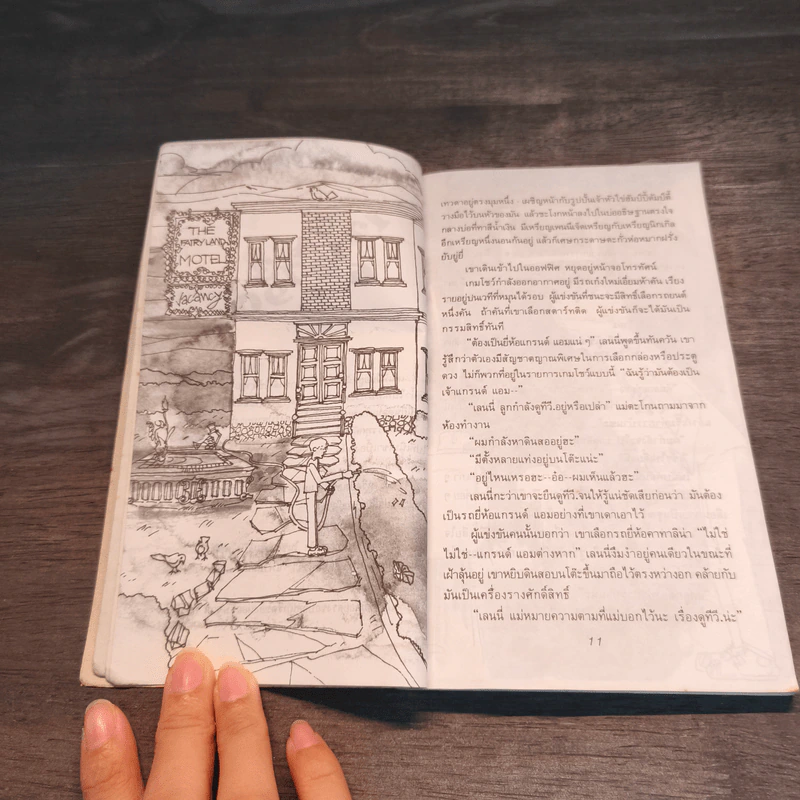 THE
FAIRYLAND
MOTEL
VACANCY
เทวดาอยู่ตรงมุมหนึ่ง เผชิญหน้ากับรูปปั้นเจ้าหัวไข่ฮัมป์ตี้ดัมป์ตี้
วางมือไว้บนหัวของมัน แล้วชะโงกหน้าลงไปในบ่ออธิษฐานตรงใจ
กลางบ่อที่ทาสีน้ำเงิน มีเหรียญเพนนีเจ็ดเหรียญกับเหรียญนิกเกิล
อีกเหรียญหนึ่งนอนก้นอยู่ แล้วก็เศษกระดาษตะกั่วห่อหมากฝรั่ง
ยับยู่ยี่
เขาเดินเข้าไปในออฟฟิศ หยุดอยู่หน้าจอโทรทัศน์
เกมโชว์กำลังออกอากาศอยู่ มีรถเก๋งใหม่เอี่ยมห้าคัน เรียง
รายอยู่บนเวทีที่หมุนได้รอบ ผู้แข่งขันที่ชนะจะมีสิทธิ์เลือกรถยนต์
หนึ่งคัน ถ้าคันที่เขาเลือกสตาร์ทติด ผู้แข่งขันก็จะได้มันเป็น
กรรมสิทธิ์ทันที
“ต้องเป็นยี่ห้อแกรนด์ แอมแน่ ๆ” เลนนี่พูดขึ้นทันควัน เขา
รู้สึกว่าตัวเองมีสัญชาตญาณพิเศษในการเลือกกล่องหรือประตู
ดวง ไม่ก็พวกที่อยู่ในรายการเกมโชว์แบบนี้ “ฉันรู้ว่ามันต้องเป็น
เจ้าแกรนด์ แอม--”
“เลนนี่ ลูกกำลังดูทีวี.อยู่หรือเปล่า” แม่ตะโกนถามมาจาก
ห้องทำงาน
“ผมกำลังหาดินสออยู่ฮะ”
“มีตั้งหลายแท่งอยู่บนโต๊ะแน่ะ”
“อยู่ไหนเหรอฮะ--อ๋อ--ผมเห็นแล้วฮะ”
เลนนี่กะว่าเขาจะยืนดูทีวี.จนให้รู้แน่ชัดเสียก่อนว่า มันต้อง
เป็นรถยี่ห้อแกรนด์ แอมอย่างที่เขาเดาเอาไว้
ผู้แข่งขันคนนั้นบอกว่า เขาเลือกรถยี่ห้อคาทาลิน่า “ไม่ใช่
ไม่ใช่--แกรนด์ แอมต่างหาก” เลนนี่งึมงำอยู่คนเดียวในขณะที่
เฝ้าลุ้นอยู่ เขาหยิบดินสอบนโต๊ะขึ้นมาถือไว้ตรงหว่างอก คล้ายกับ
มันเป็นเครื่องรางศักดิ์สิทธิ์
“เลนนี่ แม่หมายความตามที่แม่บอกไว้นะ เรื่องดูทีวี.น่ะ”
11